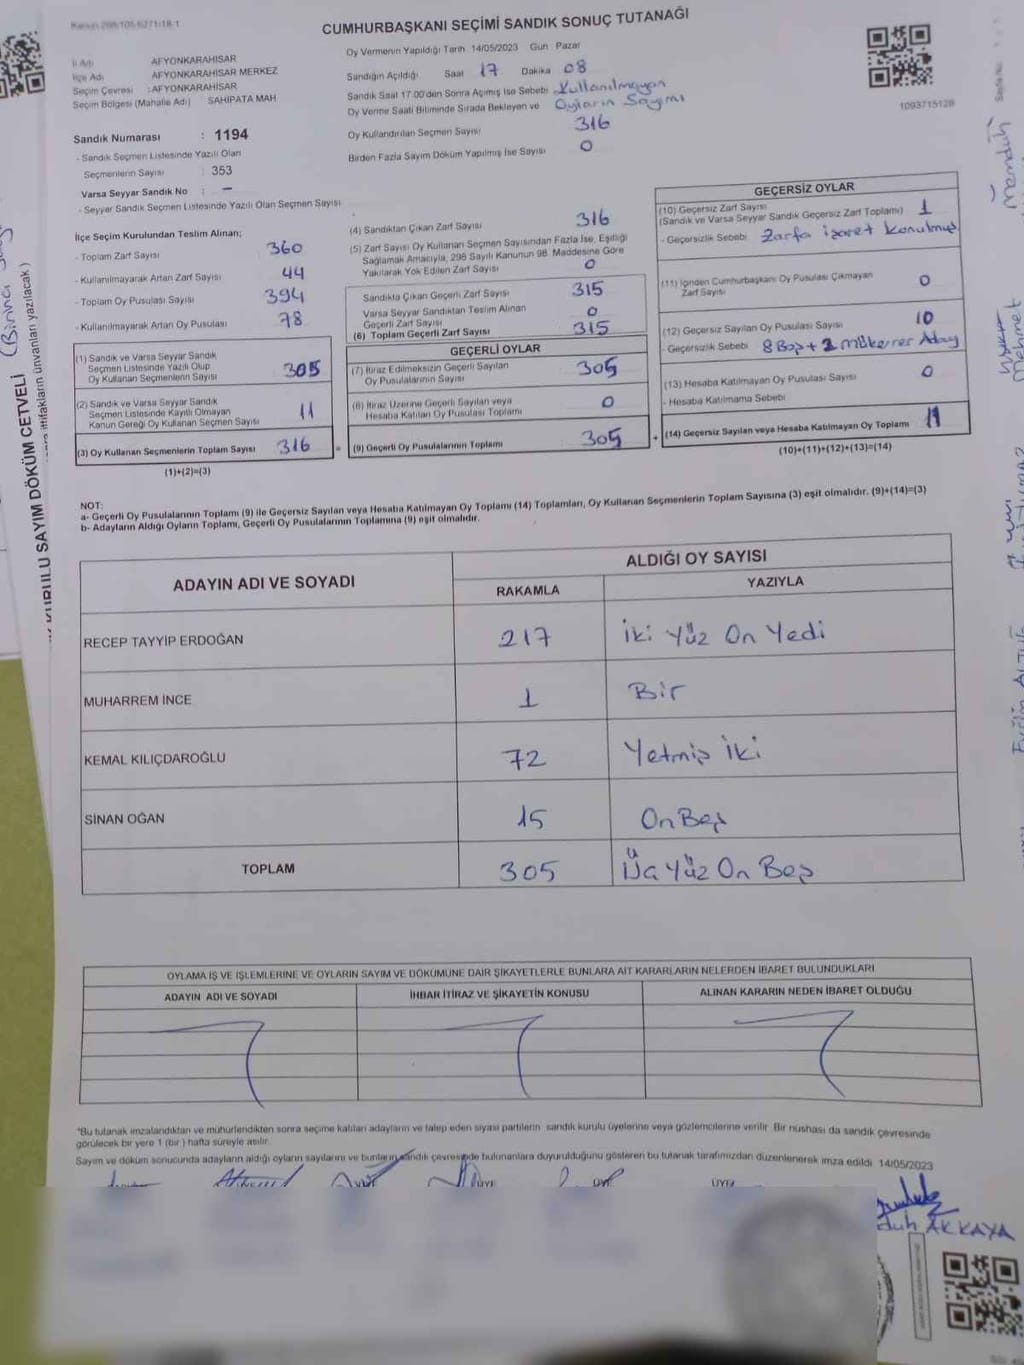 CUMHURBAŞKANI SEÇİMİ SANDIK SONUÇ TUTANAĞI
İl Adı AFYONKARAHISAR
İlçe Adı AFYONKARAHISAR MERKEZ
Seçim Çevresi : AFYONKARAHISAR
Seçim Bölgesi (Mahalle Adı) SAHIPATA MAH
Oy Vermenin Yapıldığı Tarih 14/05/2023 Gün Pazar
Sandığın Açıldığı Saat 17 Dakika 08
Sandık Saat 17:00'den Sonra Açımış İse Sebebi Kullanılmayan
Oy Verme Saati Bitiminde Sırada Bekleyen ve Oyların Sayımı
Oy Kullandırılan Seçmen Sayısı 316
Birden Fazla Sayım Döküm Yapılmış İse Sayısı 0
1093715128
Sandık Numarası : 1194
- Sandık Seçmen Listesinde Yazılı Olan
Seçmenlerin Sayısı : 353
Varsa Seyyar Sandık No : –
- Seyyar Sandık Seçmen Listesinde Yazılı Olan Seçmen Sayısı
İlçe Seçim Kurulundan Teslim Alınan;
- Toplam Zarf Sayısı 360
- Kullanılmayarak Artan Zarf Sayısı 44
- Toplam Oy Pusulası Sayısı 394
- Kullanılmayarak Artan Oy Pusulası 78
(1) Sandık ve Varsa Seyyar Sandık
Seçmen Listesinde Yazılı Olup
Oy Kullanan Seçmenlerin Sayısı 305
(2) Sandık ve Varsa Seyyar Sandık
Seçmen Listesinde Kayıtlı Olmayan
Kanun Gereği Oy Kullanan Seçmen Sayısı 11
(3) Oy Kullanan Seçmenlerin Toplam Sayısı 316
(1)+(2)=(3)
(4) Sandıktan Çıkan Zarf Sayısı 316
(5) Zarf Sayısı Oy Kullanan Seçmen Sayısından Fazla İse, Eşitliği
Sağlamak Amacıyla, 298 Sayılı Kanunun 98. Maddesine Göre
Yakılarak Yok Edilen Zarf Sayısı 0
Sandıkta Çıkan Geçerli Zarf Sayısı 315
Varsa Seyyar Sandıktan Teslim Alınan
Geçerli Zarf Sayısı 0
(6) Toplam Geçerli Zarf Sayısı 315
GEÇERLİ OYLAR
(7) İtiraz Edilmeksizin Geçerli Sayılan
Oy Pusulalarının Sayısı 305
(8) İtiraz Üzerine Geçerli Sayılan veya
Hesaba Katılan Oy Pusulası Toplamı 0
(9) Geçerli Oy Pusulalarının Toplamı 305
GEÇERSİZ OYLAR
(10) Geçersiz Zarf Sayısı
(Sandık ve Varsa Seyyar Sandık Geçersiz Zarf Toplamı) 1
- Geçersizlik Sebebi Zarfa işaret konulmuş
(11) İçinden Cumhurbaşkanı Oy Pusulası Çıkmayan
Zarf Sayısı 0
(12) Geçersiz Sayılan Oy Pusulası Sayısı 10
- Geçersizlik Sebebi 8 Boş + 2 Mükerrer Aday
(13) Hesaba Katılmayan Oy Pusulası Sayısı 0
- Hesaba Katılmama Sebebi
(14) Geçersiz Sayılan veya Hesaba Katılmayan Oy Toplamı 11
(10)+(11)+(12)+(13)=(14)
NOT:
a- Geçerli Oy Pusulalarının Toplamı (9) ile Geçersiz Sayılan veya Hesaba Katılmayan Oy Toplamı (14) Toplamları, Oy Kullanan Seçmenlerin Toplam Sayısına (3) eşit olmalıdır. (9)+(14)=(3)
b- Adayların Aldığı Oyların Toplamı, Geçerli Oy Pusulalarının Toplamına (9) eşit olmalıdır.
ADAYIN ADI VE SOYADI ALDIĞI OY SAYISI
RAKAMLA YAZIYLA
RECEP TAYYİP ERDOĞAN 217 İki Yüz On Yedi
MUHARREM İNCE 1 Bir
KEMAL KILIÇDAROĞLU 72 Yetmiş İki
SİNAN OĞAN 15 On Beş
TOPLAM 305 Üç Yüz On Beş
OYLAMA İŞ VE İŞLEMLERİNE VE OYLARIN SAYIM VE DÖKÜMÜNE DAİR ŞİKAYETLERLE BUNLARA AİT KARARLARIN NELERDEN İBARET BULUNDUKLARI
ADAYIN ADI VE SOYADI İHBAR İTİRAZ VE ŞİKAYETİN KONUSU ALINAN KARARIN NEDEN İBARET OLDUĞU
"Bu tutanak imzalandıktan ve mühürlendikten sonra seçime katılan adayların ve talep eden siyasi partilerin sandık kurulu üyelerine veya gözlemcilerine verilir. Bir nushası da sandık çevresinde
görülecek bir yere 1 (bir) hafta süreyle asılır.
Sayım ve döküm sonucunda adayların aldığı oyların sayılarını ve bunların sandık çevresinde bulunanlara duyurulduğunu gösteren bu tutanak tarafımızdan düzenlenerek imza edildi. 14/05/2023
ÜYE ÜYE ÜYE
AKKAYA
KURULU SAYIM DÖKÜM CETVELİ (Birinci
ittifakların ünvanları yazılacak )
Mehmet